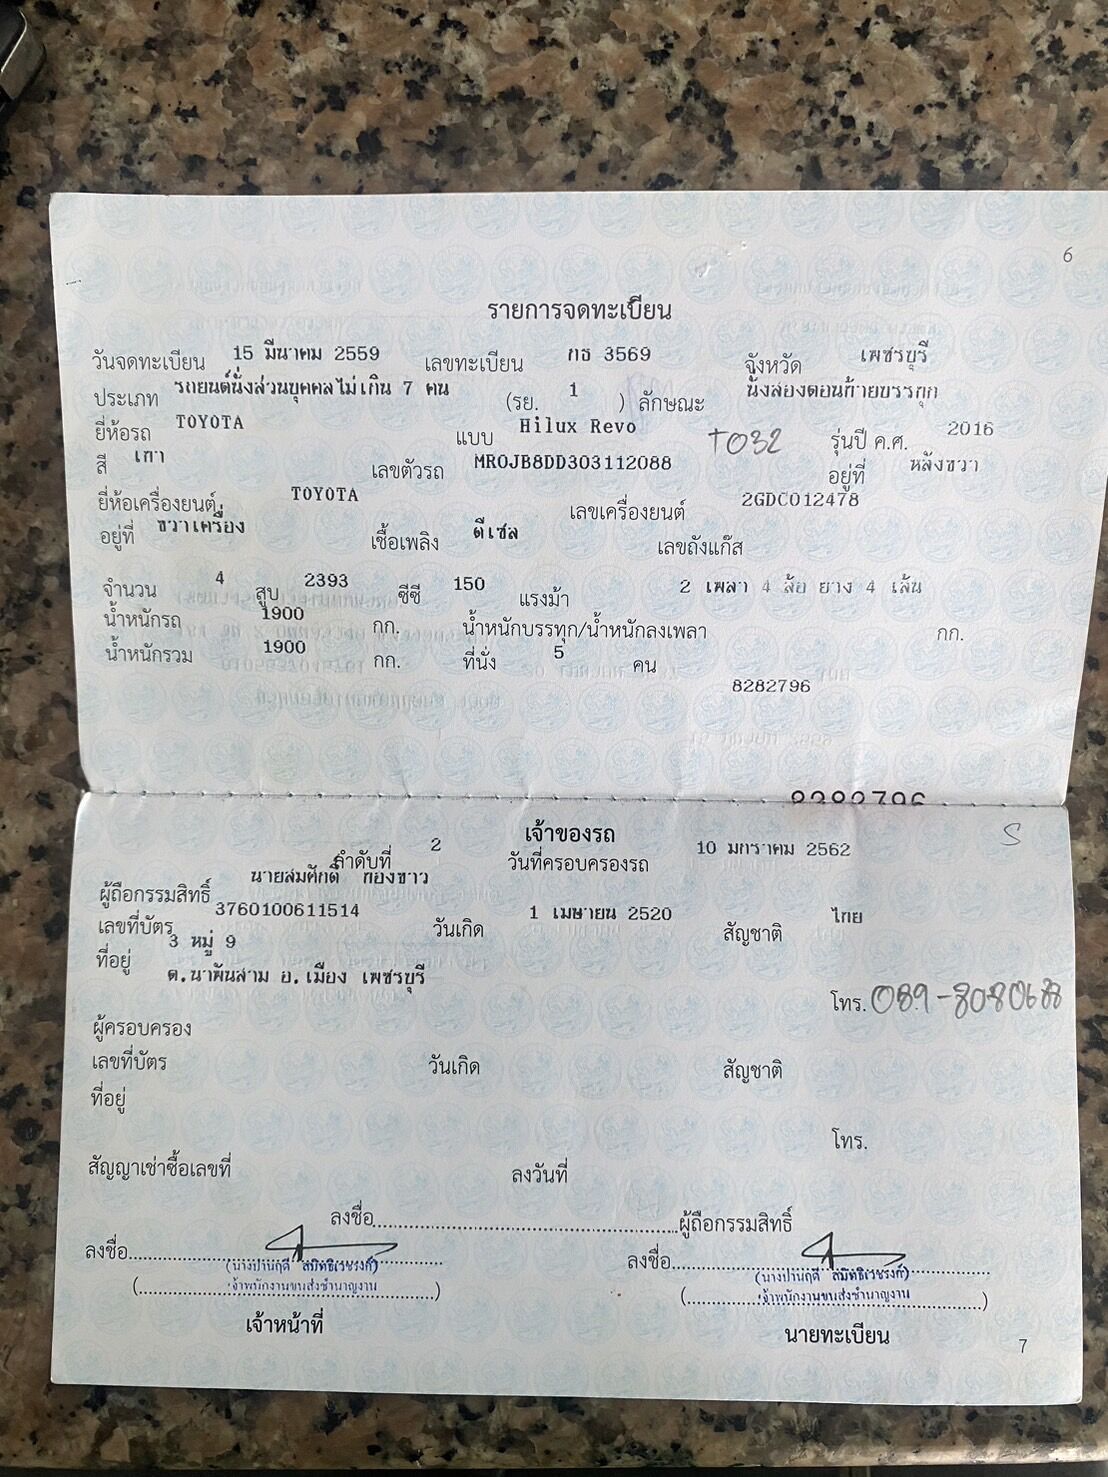 6
รายการจดทะเบียน
วันจดทะเบียน 15 มีนาคม 2559 เลขทะเบียน กธ 3569 จังหวัด เพชรบุรี
ประเภท รถยนต์นั่งส่วนบุคคลไม่เกิน 7 คน (รย. 1 ) ลักษณะ นั่งสองตอนท้ายบรรทุก
ยี่ห้อรถ TOYOTA แบบ Hilux Revo TO32 รุ่นปี ค.ศ. 2016
สี เทา เลขตัวรถ MR0JB8DD303112088 อยู่ที่ หลังขวา
ยี่ห้อเครื่องยนต์ TOYOTA เลขเครื่องยนต์ 2GDC012478
อยู่ที่ ขวาเครื่อง เชื้อเพลิง ดีเซล เลขถังแก๊ส
จำนวน 4 สูบ 2393 ซีซี 150 แรงม้า 2 เพลา 4 ล้อ ยาง 4 เส้น
น้ำหนักรถ 1900 กก. น้ำหนักบรรทุก/น้ำหนักลงเพลา กก.
น้ำหนักรวม 1900 กก. ที่นั่ง 5 คน
8282796
8282796
เจ้าของรถ S
ลำดับที่ 2 วันที่ครอบครองรถ 10 มกราคม 2562
ผู้ถือกรรมสิทธิ์ นายสมศักดิ์ ทองขาว
เลขที่บัตร 3760100611514 วันเกิด 1 เมษายน 2520 สัญชาติ ไทย
ที่อยู่ 3 หมู่ 9
ต.นาพันสาม อ.เมือง เพชรบุรี
โทร. 089-8080688
ผู้ครอบครอง
เลขที่บัตร วันเกิด สัญชาติ
ที่อยู่
โทร.
สัญญาเช่าซื้อเลขที่ ลงวันที่
ลงชื่อ ผู้ถือกรรมสิทธิ์
ลงชื่อ ลงชื่อ
(นางปานฤดี สมิทธิเวชรงค์) (นางปานฤดี สมิทธิเวชรงค์)
เจ้าพนักงานขนส่งชำนาญงาน เจ้าพนักงานขนส่งชำนาญงาน
เจ้าหน้าที่ นายทะเบียน
7